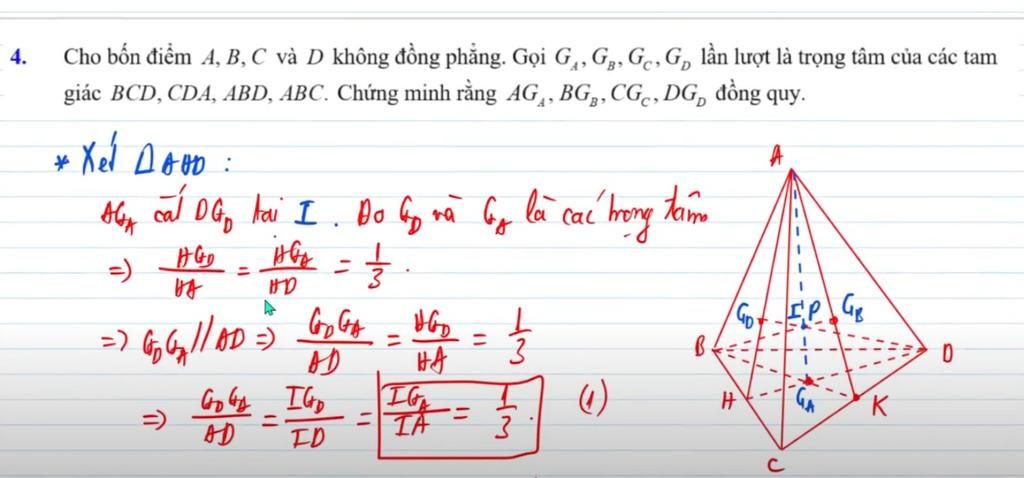 4. Cho bốn điểm A, B, C và D không đồng phẳng. Gọi G_A, G_B, G_C, G_D lần lượt là trọng tâm của các tam
giác BCD, CDA, ABD, ABC. Chứng minh rằng AG_A, BG_B, CG_C, DG_D đồng quy.
* Xét ΔAHD :
AG_A cắt DG_D tại I. Do G_D và G_A là các trọng tâm
=> HG_D/HA = HG_A/HD = 1/3.
=> G_DG_A // AD => G_DG_A/AD = HG_D/HA = 1/3
=> G_DG_A/AD = IG_D/ID = IG_A/IA = 1/3. (1)
A
G_D I P G_B
B D
H G_A K
C